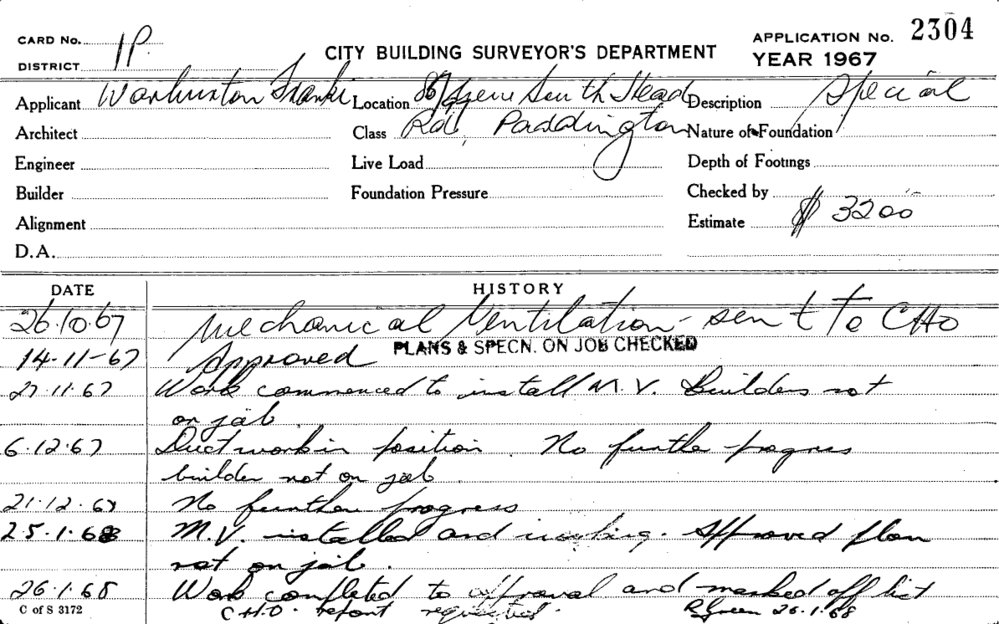 CARD No. 1P.
DISTRICT
CITY BUILDING SURVEYOR'S DEPARTMENT
APPLICATION No. 2304
YEAR 1967
Applicant Warburton Franki Location 86 Green South Head Description Special
Architect Class Rd, Paddington Nature of Foundation
Engineer Live Load Depth of Footings
Builder Foundation Pressure Checked by
Alignment Estimate $ 3200
D.A.
DATE HISTORY
26.10.67 Mechanical Ventilation - sent to CHO
14-11-67 Approved PLANS & SPECN. ON JOB CHECKED
27.11.67 Work commenced to install M.V. Builders not
on job.
6.12.67 Ductwork in position. No further progress
builder not on job.
21.12.67 No further progress
25.1.68 M.V. installed and working. Approved plan
not on job.
26.1.68 Work completed to approval and marked off list
C of S 3172 C.H.O. report requested. R Green 26.1.68